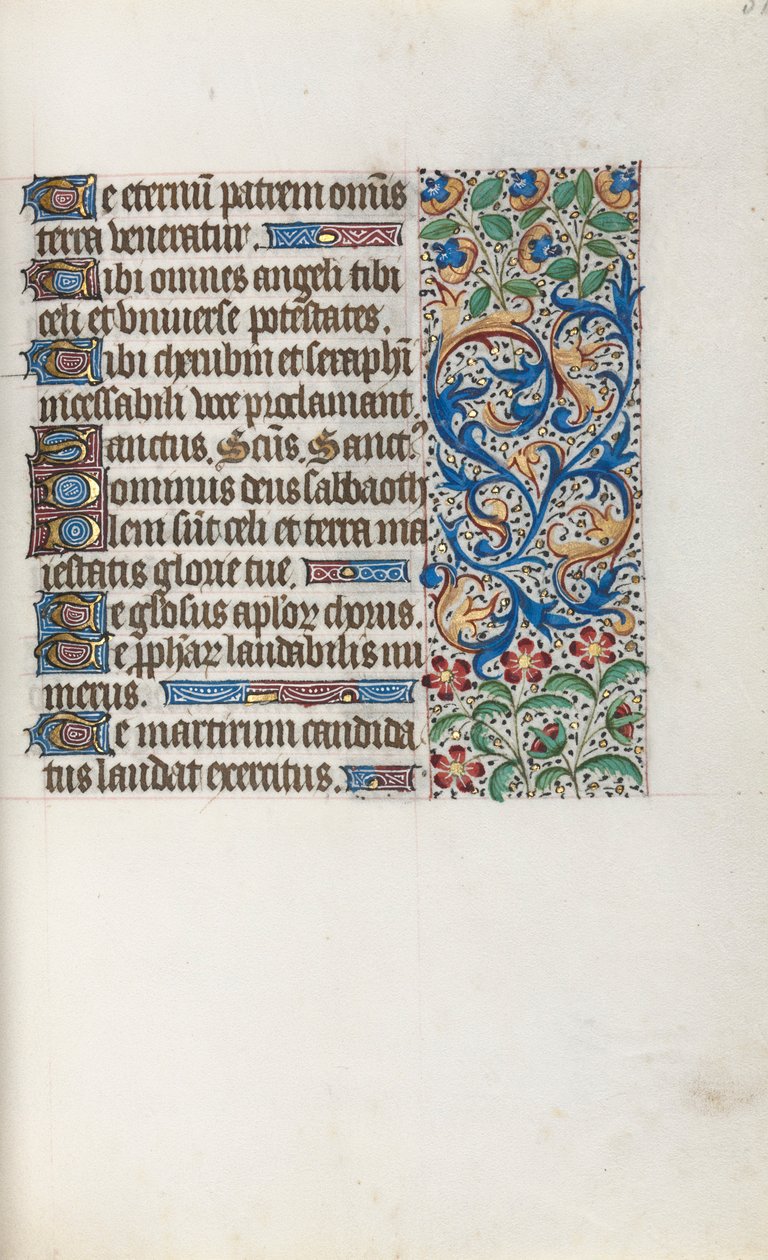 Te eternū patrem omīs
terra veneratur.
Tibi omnes angeli tibi
celi et vniuerse potestates.
Tibi cherubin et seraphī
incessabili voce proclamant.
Sanctus. Scūs. Sanctꝰ
Dominus deus sabbaoth
Pleni sūt celi et terra ma
iestatis glorie tue.
Te gl̄osus apl̄oꝝ chorus.
Te ꝓph̄aꝝ laudabilis nu
merus.
Te martirum candida
tus laudat exercitus.